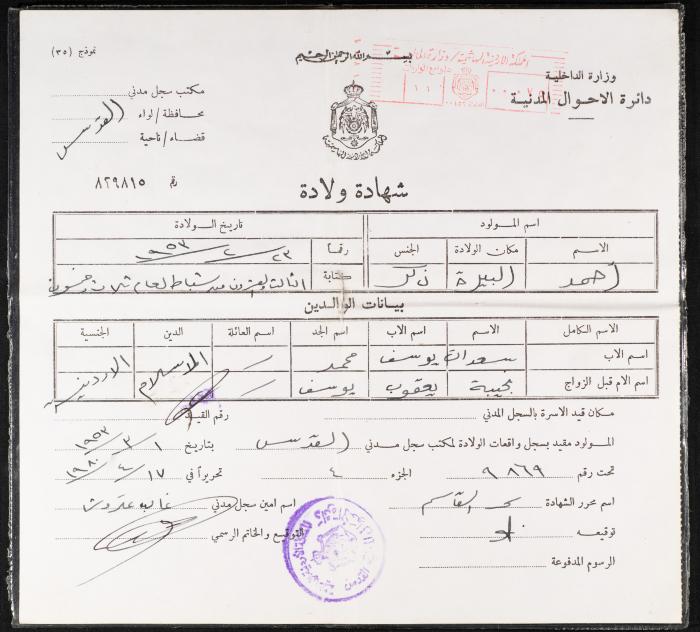 نموذج (٣٥)
بسم الله الرحمن الرحيم
وزارة الداخلية
دائرة الاحوال المدنية
مكتب سجل مدني
محافظة / لواء
قضاء / ناحية
القدس
رقم ٨٢٩٨١٥
شهادة ولادة
اسم المولود تاريخ الولادة
الاسم مكان الولادة الجنس رقماً ٢٣ / ٢ / ١٩٥٣
أحمد البيرة ذكر كتابة الثالث والعشرون من شباط لعام ثلاث وخمسون
بيانات الوالدين
الاسم الكامل الاسم اسم الاب اسم الجد اسم العائلة الدين الجنسية
اسم الاب يوسف محمد الاسلام الاردنية
اسم الام قبل الزواج نجيبة يعقوب يوسف
مكان قيد الاسرة بالسجل المدني رقم القيد
المولود مقيد بسجل واقعات الولادة لمكتب سجل مدني القدس بتاريخ ١ / ٣ / ١٩٥٣
تحت رقم ٩٨٦٩ الجزء ٤ تحريراً في ١٧ / ٤ / ١٩٨٠
اسم محرر الشهادة اسم امين سجل مدني
توقيعه التوقيع والخاتم الرسمي
الرسوم المدفوعة